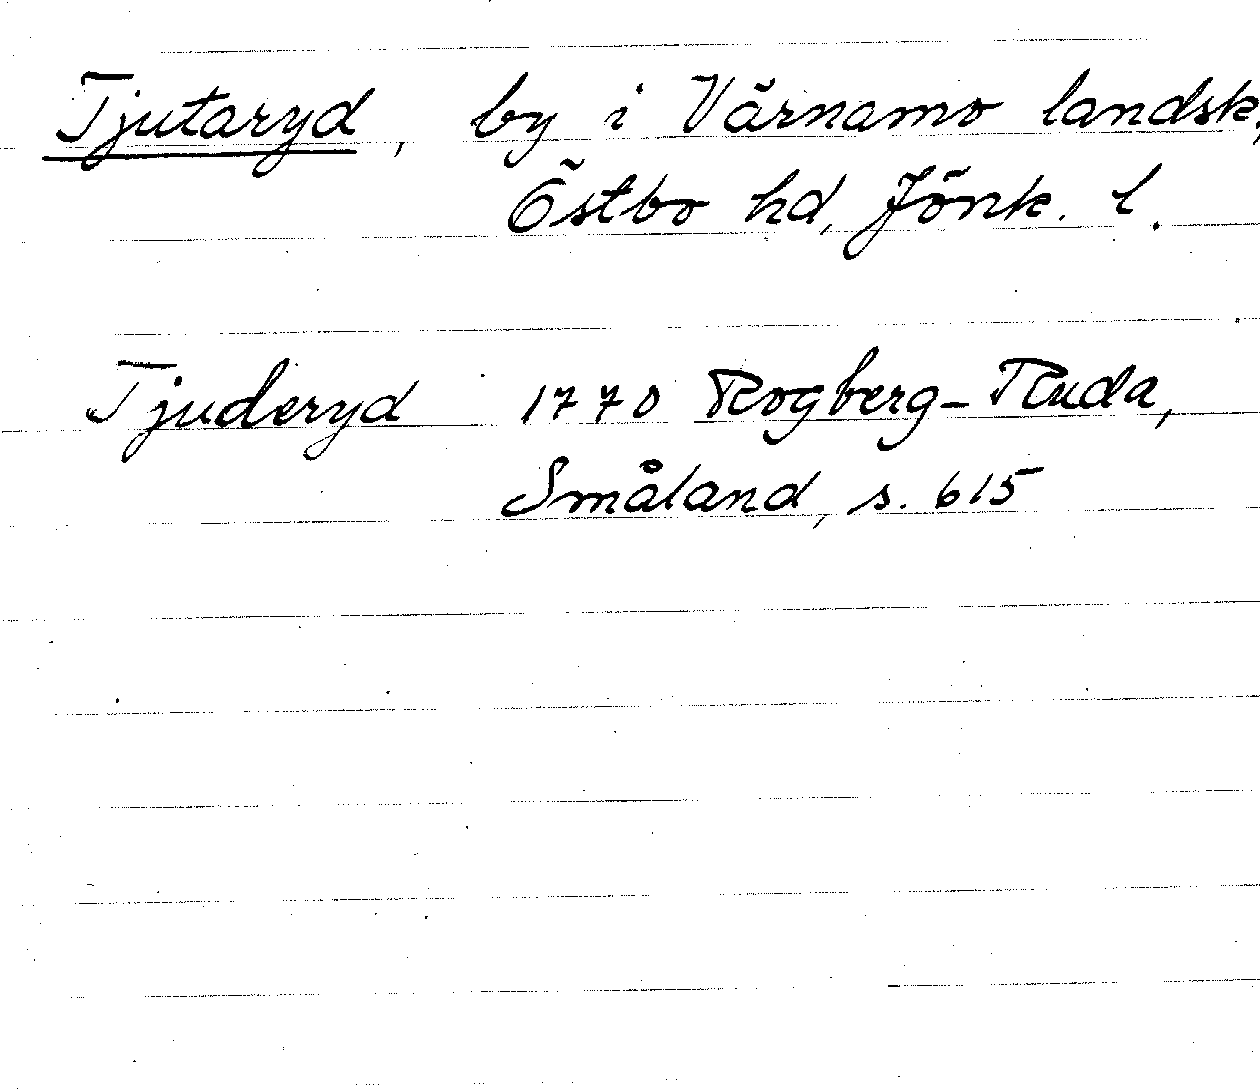 Tjutaryd, by i Värnamo landsk,
Östbo hd, Jönk. l.
Tjuderyd 1770 Rogberg-Ruda,
Småland, s. 615